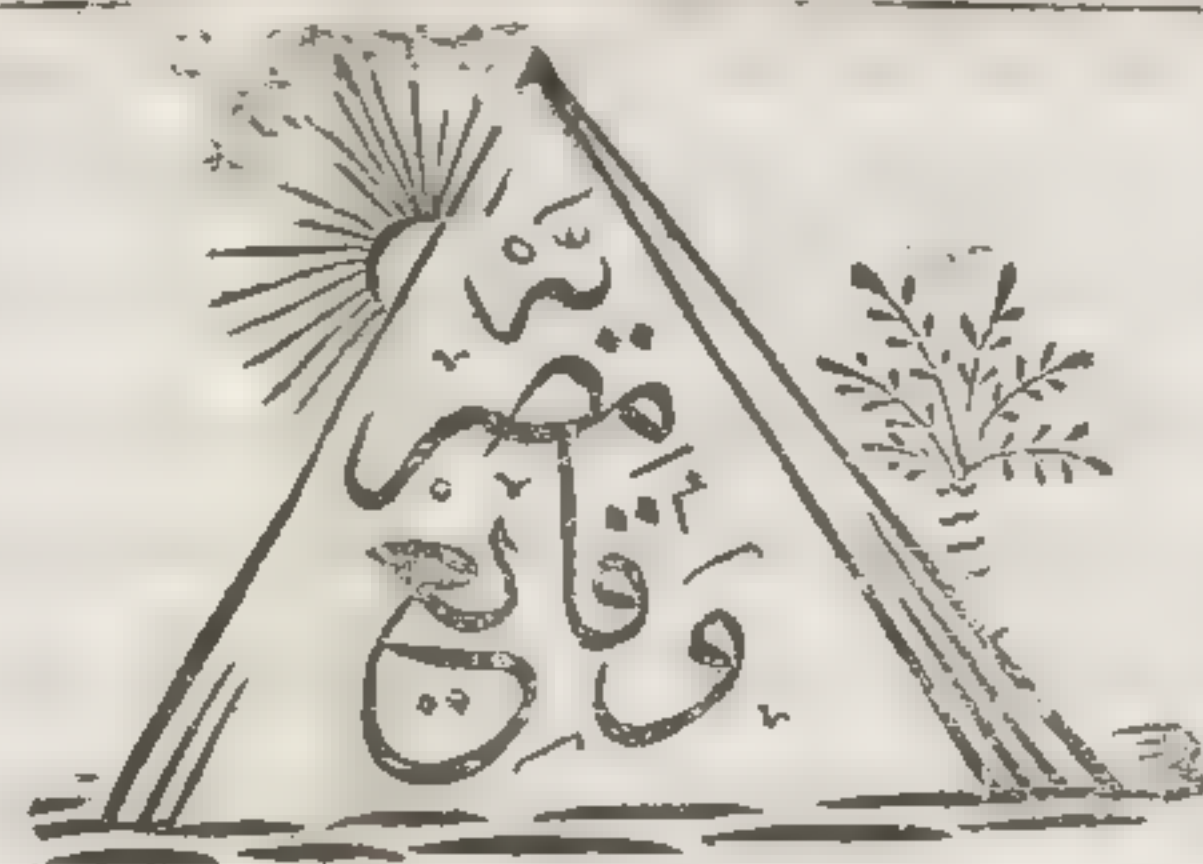 وقايع مصريه